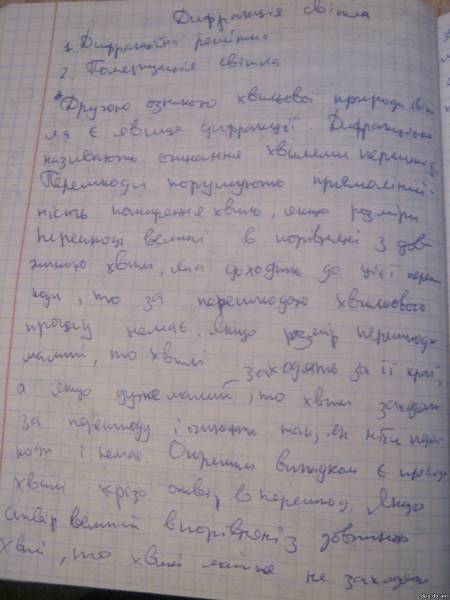 Дифракція світла
1. Дифракційна решітка
2. Поляризація світла
*Другою ознакою хвильової природи світ
ла є явище дифракції. Дифракцією
називають огинання хвилями перешкод.
Перешкоди порушують прямоліній-
ність поширення хвиль, якщо розміри
перешкод великі в порівнянні з дов-
жиною хвилі, яка доходить до цієї переш
коди, то за перешкодою хвильового
процесу немає. Якщо розмір перешкоди
малий, то хвилі заходять за її краї,
а якщо дуже малий, то хвилі заходять
за перешкоду і так, як ніби переш
коди і немає. Окремим випадком є прохід
хвилі крізь отвір в перешкод. Якщо
отвір великий в порівнянні з довжиною
хвилі, то хвилі майже не заходять
dpadaam